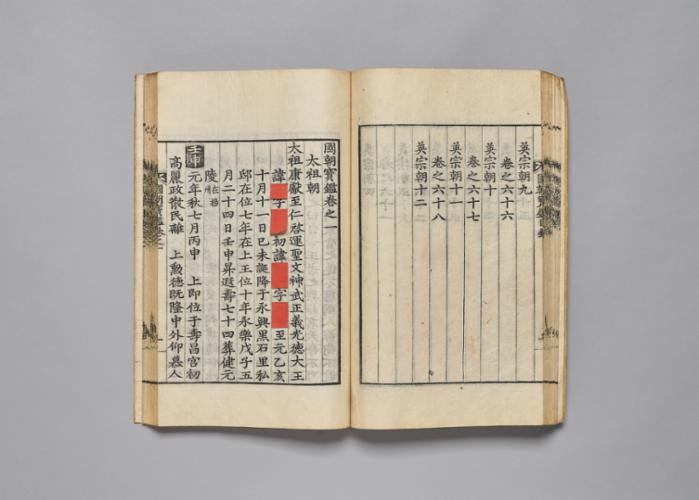 英宗朝九
卷之六十六
英宗朝十
卷之六十七
英宗朝十一
卷之六十八
英宗朝十二
國朝寶鑑卷之一
太祖朝
太祖康獻至仁啓運聖文神武正義光德大王
諱 字 初諱 字 至元乙亥
十月十一日己未誕降于永興黑石里私
邸在位七年在上王位十年永樂戊子五
月二十四日壬申昇遐壽七十四葬健元
陵在楊州
壬申 元年秋七月丙申 上卽位于壽昌宮初
高麗政散民離 上勳德旣隆中外仰慕人